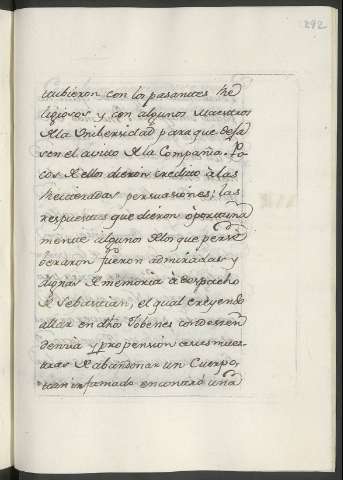 292
tubieron con los pasantes Re
ligiosos y con algunos Maestros
de la Unibersidad para que deja
sen el avito de la Compañia. Po
cos de ellos dieron credito à las
Reiteradas persuasiones; las
respuestas que dieron oportuna
mente algunos de los que perse
beraron fueron admiradas y
dignas de memoria à despacho
de Sebastian, el qual creyendo
allar en dhos Jobenes condesen
dencia y propension a
de abandonar un Cuerpo,
tan infamado encontró una